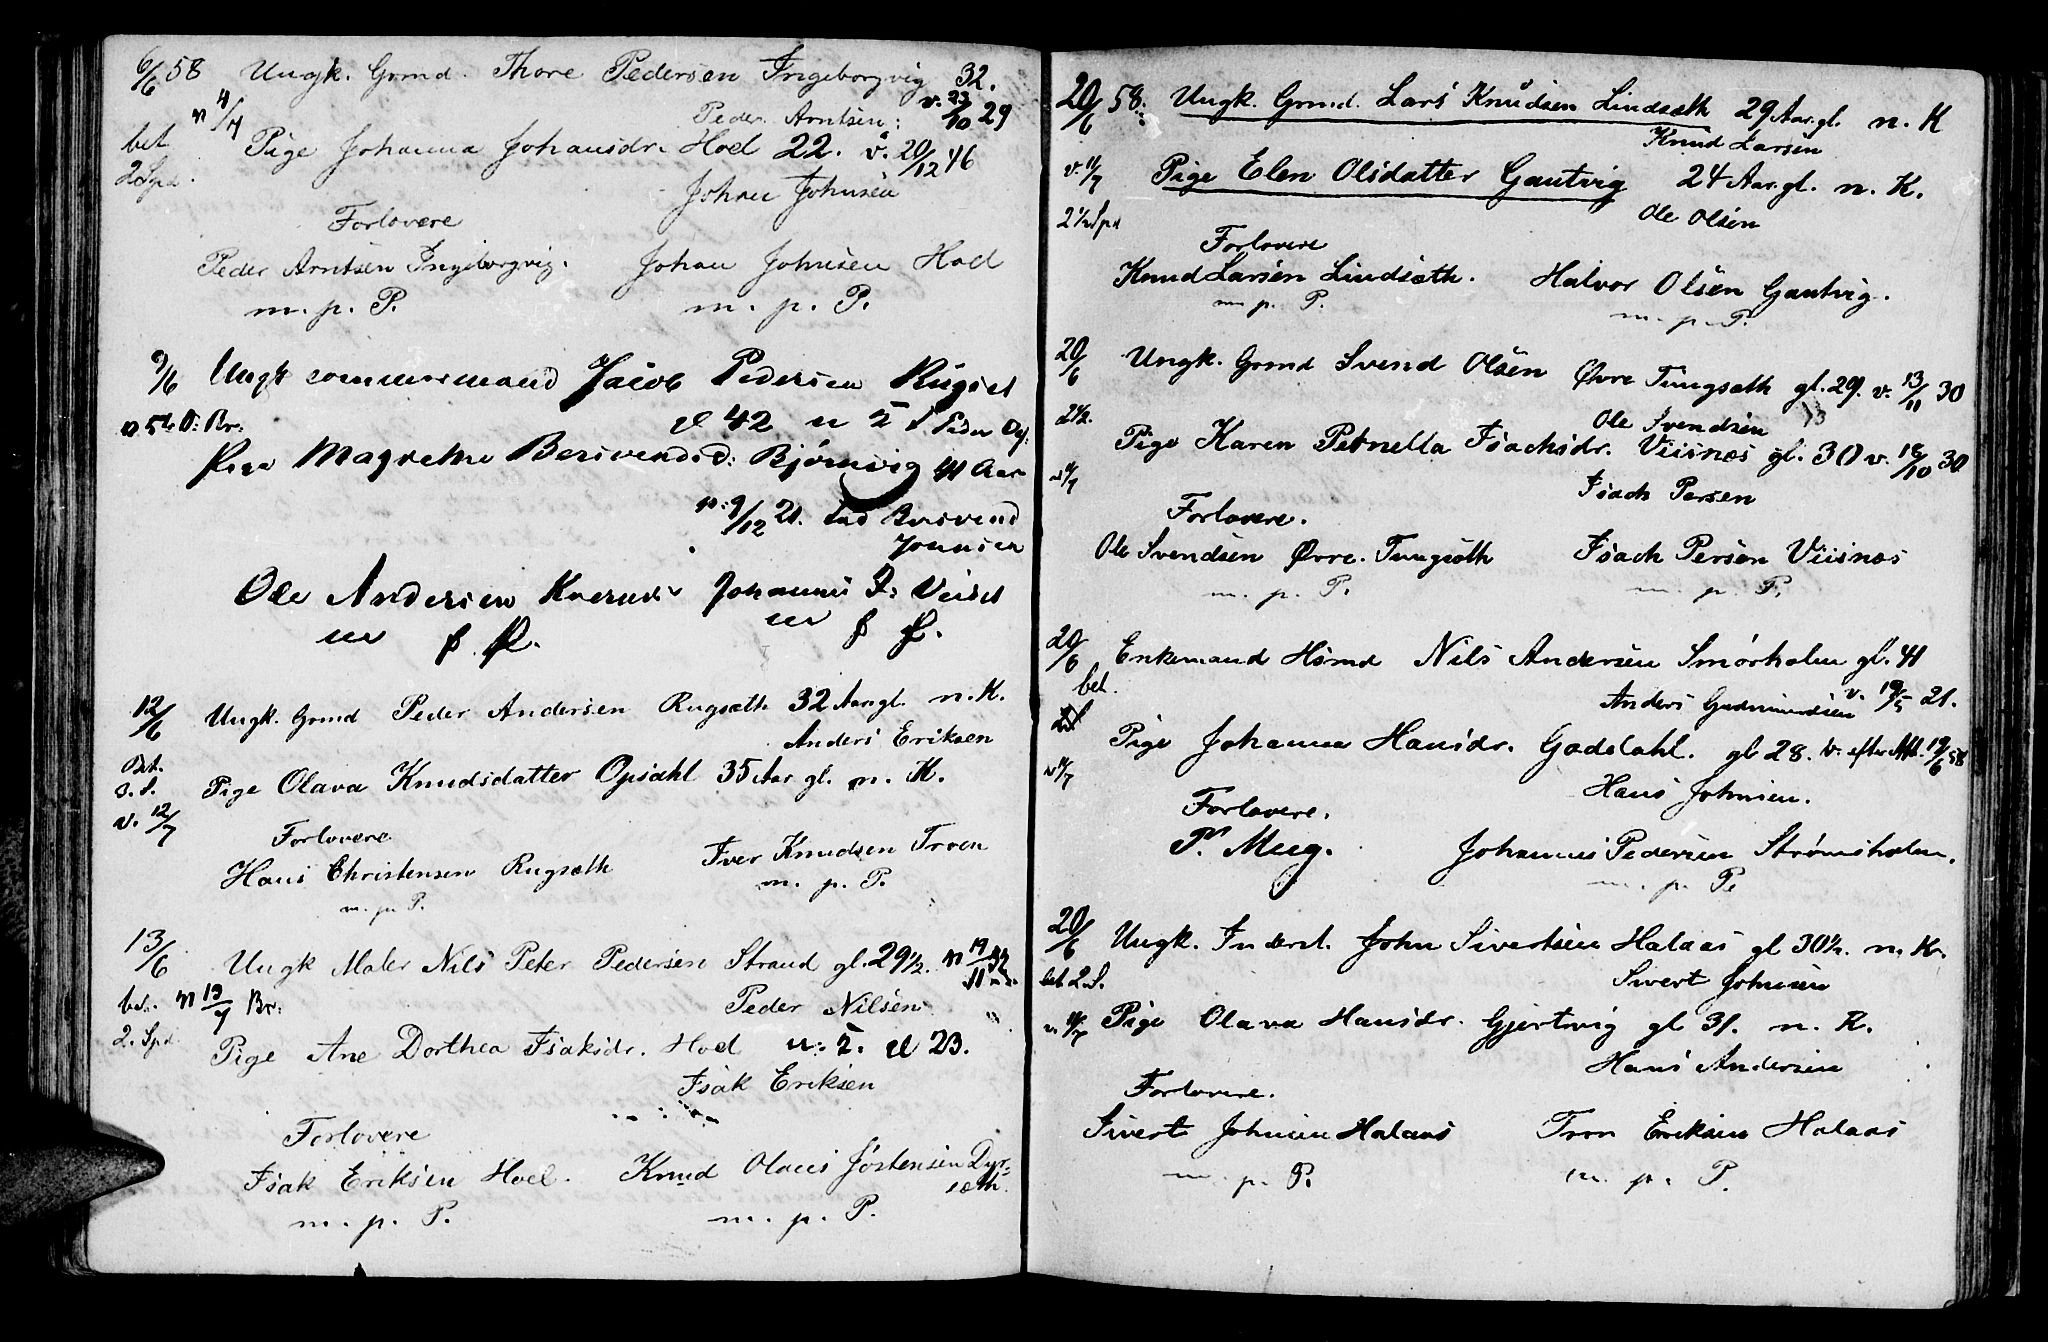 6/6 58 Ungk. Grmd. Thore Pedersen Ingeborgvig 32.
v. 4/7 Peder Arntsen: v. 23/10 29
bet Pige Johanna Johansdr. Hoel 22. v. 20/12 46
2 Spd. Johan Johnsen
Forlovere
Peder Arntsen Ingeborgvig. Johan Johnsen Hoel
m. p. P. m. p. P.
9/6 Ungk Jacob Pedersen Rugset
42
Bjørnvig 41 Aar
9/12 21.
Ole Andersen Johannes
m p P. m p P.
12/6 Ungk. Grmd Peder Andersen Rugsæth 32 Aar gl. n. K.
Anders Eriksen
Bet.
3. S. Pige Olava Knudsdatter Opsahl 35 Aar gl. n. K.
v. 12/7
Forlovere
Hans Christensen Rugsæth Iver Knudsen Troen
m. p. P. m. p. P.
13/6 Ungk Maler Nils Peter Pedersen Strand gl. 29 1/2.
bet. 19/7 Br: Peder Nilsen
2. Spd Pige Ane Dorthea Isaksdr. Hoel 23.
Isak Eriksen
Forlovere
Isak Eriksen Hoel. Knud Olaus Jostensen Dyr-
sæth.
m. p. P. m. p. P.
20/6 58. Ungk. Grmd. Lars Knudsen Lindsæth 29 Aar gl. n. K
Knud Larsen
v. 11/7 Pige Elen Olsdatter Gautvig 24 Aar gl. n. K.
2 1/2 Spd Ole Olsen
Forlovere
Knud Larsen Lindsæth. Halvor Olsen Gautvig.
m. p. P. m. p. P.
20/6 Ungk. Grmd Svend Olsen Øvre Tungsæth gl. 29. v. 13/11 30
2 1/2. Ole Svendsen 13
Pige Karen Petnella Isachsdr. Viisnæs gl. 30 v. 18/10 30
Isach Persen
Forlovere.
Ole Svendsen Øvre. Tungsæth Isach Persen Viisnæs
m. p. P. m. p. P.
20/6 Enkemand Hsmd Nils Andersen Smørholm gl. 41
bet. Anders Gudmundsen v. 19/5 21.
Pige Johanna Hansdr. Gaddahl. gl 28. v. efter Att. 19/6 58
Hans Johnsen.
Forlovere.
P. Mug. Johannes Pedersen Strømsholm.
m. p. P
20/6 Ungk. Inderst. John Sivertsen Halaas gl 30 1/2. n. K.
bet 2. S. Sivert Johnsen
v. 11/7 Pige Olava Hansdr. Gjertvig gl 31. n. K.
Hans Andersen
Forlovere.
Sivert Johnsen Halaas Tron Eriksen Halaas
m. p. P. m. p. P.